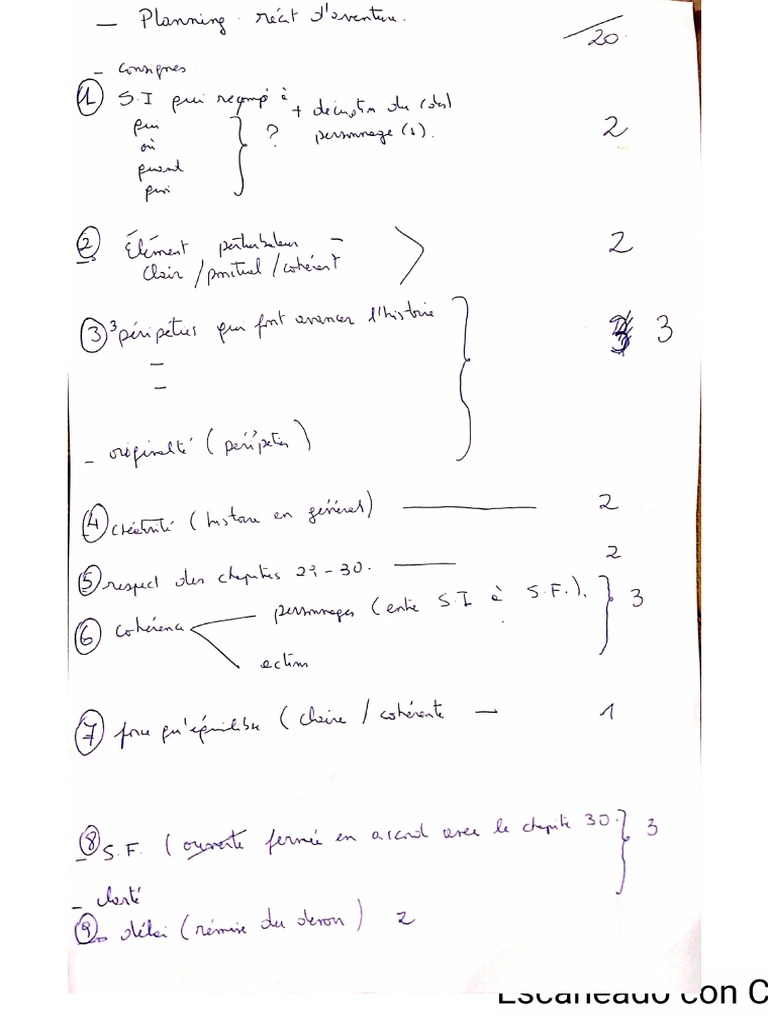 — Planning récit d'aventure.
/20
- consignes
① S.I qui répond à + description du (des)
personnage(s).
qui
où
quand
quoi
?
2
② Élément perturbateur -
Clair / ponctuel / cohérent
2
③ 3 péripéties qui font avancer l'histoire
3
–
–
- originalité (péripéties)
④ créativité (histoire en général) — 2
⑤ respect des chapitres 29-30. — 2
⑥ cohérence personnages (entre S.I à S.F.). 3
action
⑦ force qu'équilibre (claire / cohérente — 1
⑧ S.F. (ouverte fermée en accord avec le chapitre 30. 3
- clarté
⑨ délai (rémise du devoir) 2
Escaneado con C